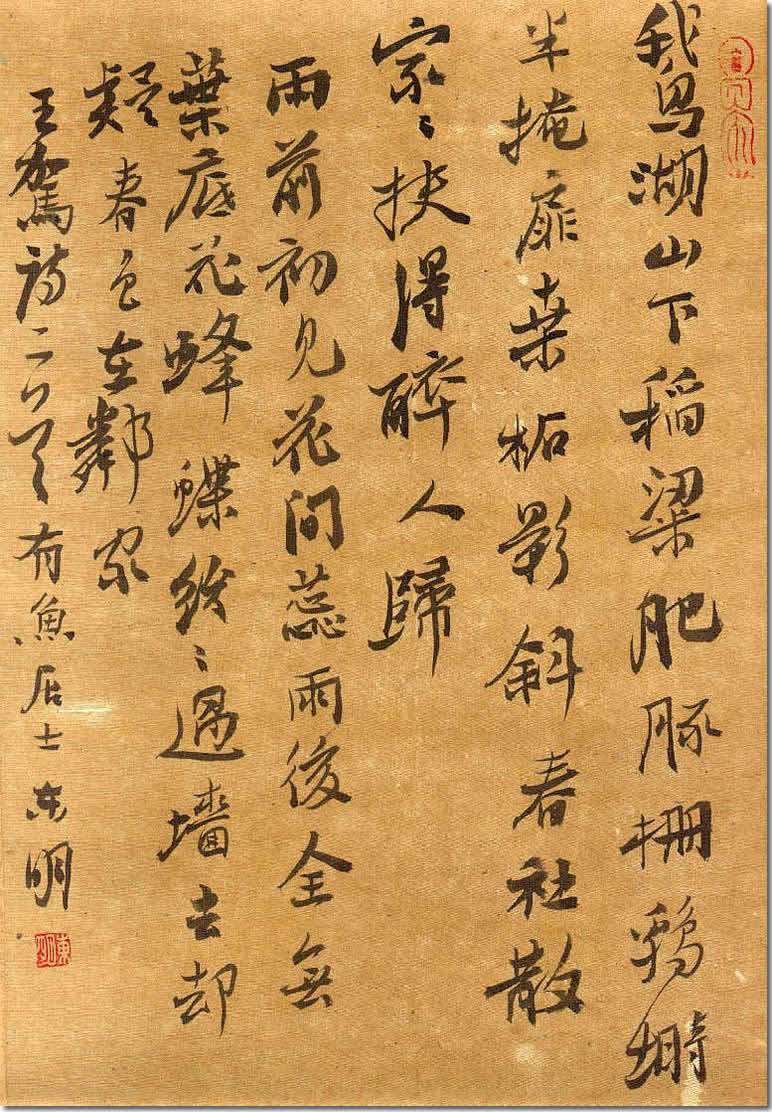 鵞湖山下稻粱肥豚柵鷄塒
半掩扉桑柘影斜春社散
家〻扶得醉人歸
雨前初見花間蕊雨後全無
葉底花蜂蝶紛〻過墻去却
疑春色在鄰家
王駕詩二首有魚居士東明
東明